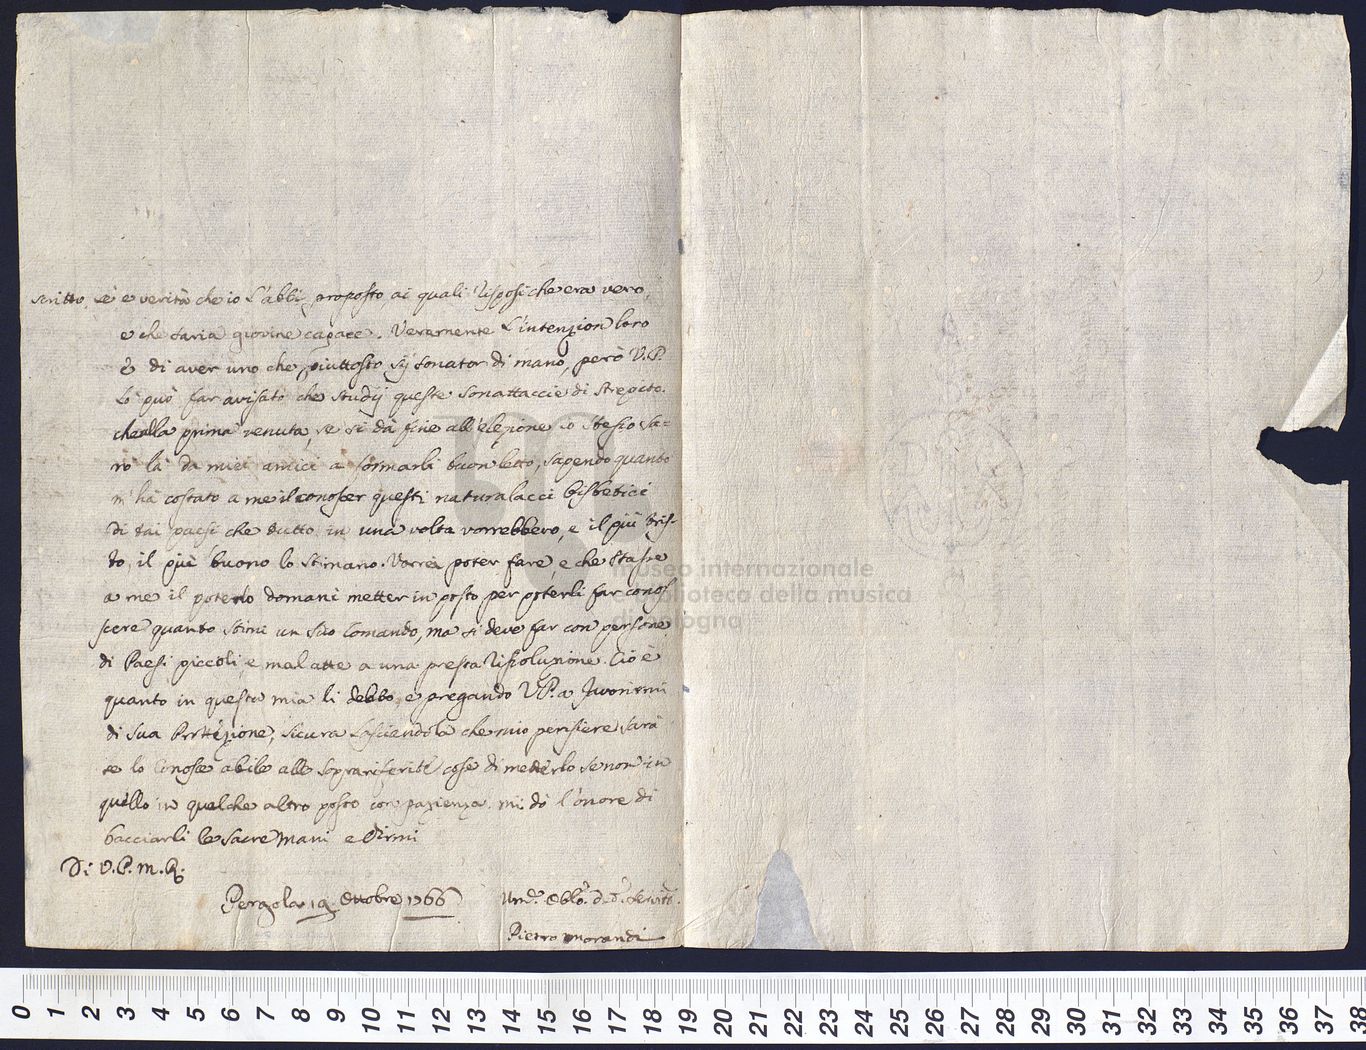 scritto, se è verità che io l'abbi proposto ai quali risposi che era vero,
e che saria giovine capace. Veramente l'intenzion loro
è di aver uno che piuttosto sij sonator di mano, però V.P.
lo può far avisato che studij queste sonattaccie di strepito.
che alla prima venuta, se si dà fine all'elezione io stesso sa=
rò là da miei amici a formarli buon letto, sapendo quanto
m'ha costato a me il conoscer questi naturalacci bisbetici
di tai paesi che tutto in una volta vorrebbero, e il più tris-
to, il più buono lo stimano. Vorrei poter fare, e che stasse
a me il poterlo domani metter in posto per poterli far conos-
scere quanto stimi un suo comando, ma si deve far con persone
di Paesi piccoli, e mal atte a una presta risoluzione. Ciò è
quanto in questa mia li debbo, e pregando V.P. a favorirmi
di sua Protezione, sicura lasciandola che mio pensiere sarà
se lo conosce abile alle soprariferite cose di metterlo se non in
quello in qualche altro posto con pazienza. mi dò l'onore di
bacciarli le sacre mani e dirmi
Di V.P.M.R.
Pergola 19 Ottobre 1766
Um.o Obblo. d.o Servit.
Pietro Morandi
museo internazionale
e biblioteca della musica
di bologna
0 1 2 3 4 5 6 7 8 9 10 11 12 13 14 15 16 17 18 19 20 21 22 23 24 25 26 27 28 29 30 31 32 33 34 35 36 37 38